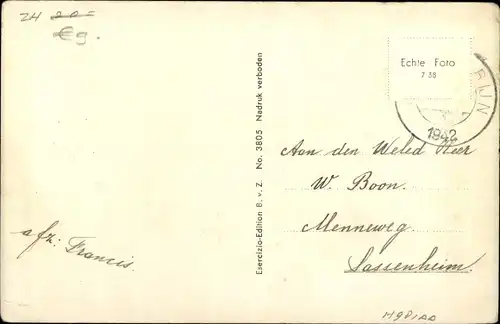 ZH 20=
€9.
Echte Foto
7 38
RIJN
1942
Aan den Weled Heer
W. Boon.
Menneweg.
Sassenheim.
afz: Francis.
Esercizio-Edition B. v. Z. No. 3805 Nadruk verboden